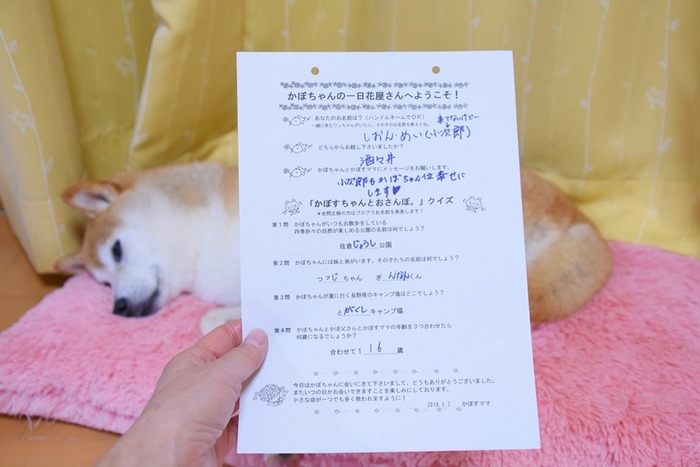 かぼちゃんの一日花屋さんへようこそ！
あなたのお名前は？（ハンドルネームでＯＫ）
一緒に来たワンちゃんがいたら、その子のお名前も教えてね。
しおん・めい（小次郎）
どちらからお越し下さいましたか？
酒々井
かぼちゃんとかぼすママにメッセージをお願いします。
小次郎もかぼちゃん位幸せに
します♥
「かぼすちゃんとおさんぽ。」クイズ
＊全問正解の方はブログでお名前を発表します！
第１問　かぼちゃんがいつもお散歩をしている
四季折々の自然が楽しめる公園の名前は何でしょう？
佐倉じょうし公園
第２問　かぼちゃんには妹と弟がいます。その子たちの名前は何でしょう？
つつじちゃん　ぎんなんくん
第３問　かぼちゃんが夏に行く長野県のキャンプ場はどこでしょう？
とがくしキャンプ場
第４問　かぼちゃんとかぼ父さんとかぼすママの年齢を３つ合わせたら
何歳になるでしょうか？
合わせて１１６歳
今日はかぼちゃんに会いにきて下さいまして、どうもありがとうございました。
またいつの日かお会いできますことを楽しみにしております。
小さな命が一つでも多く救われますように！
2018.1.7　かぼすママ